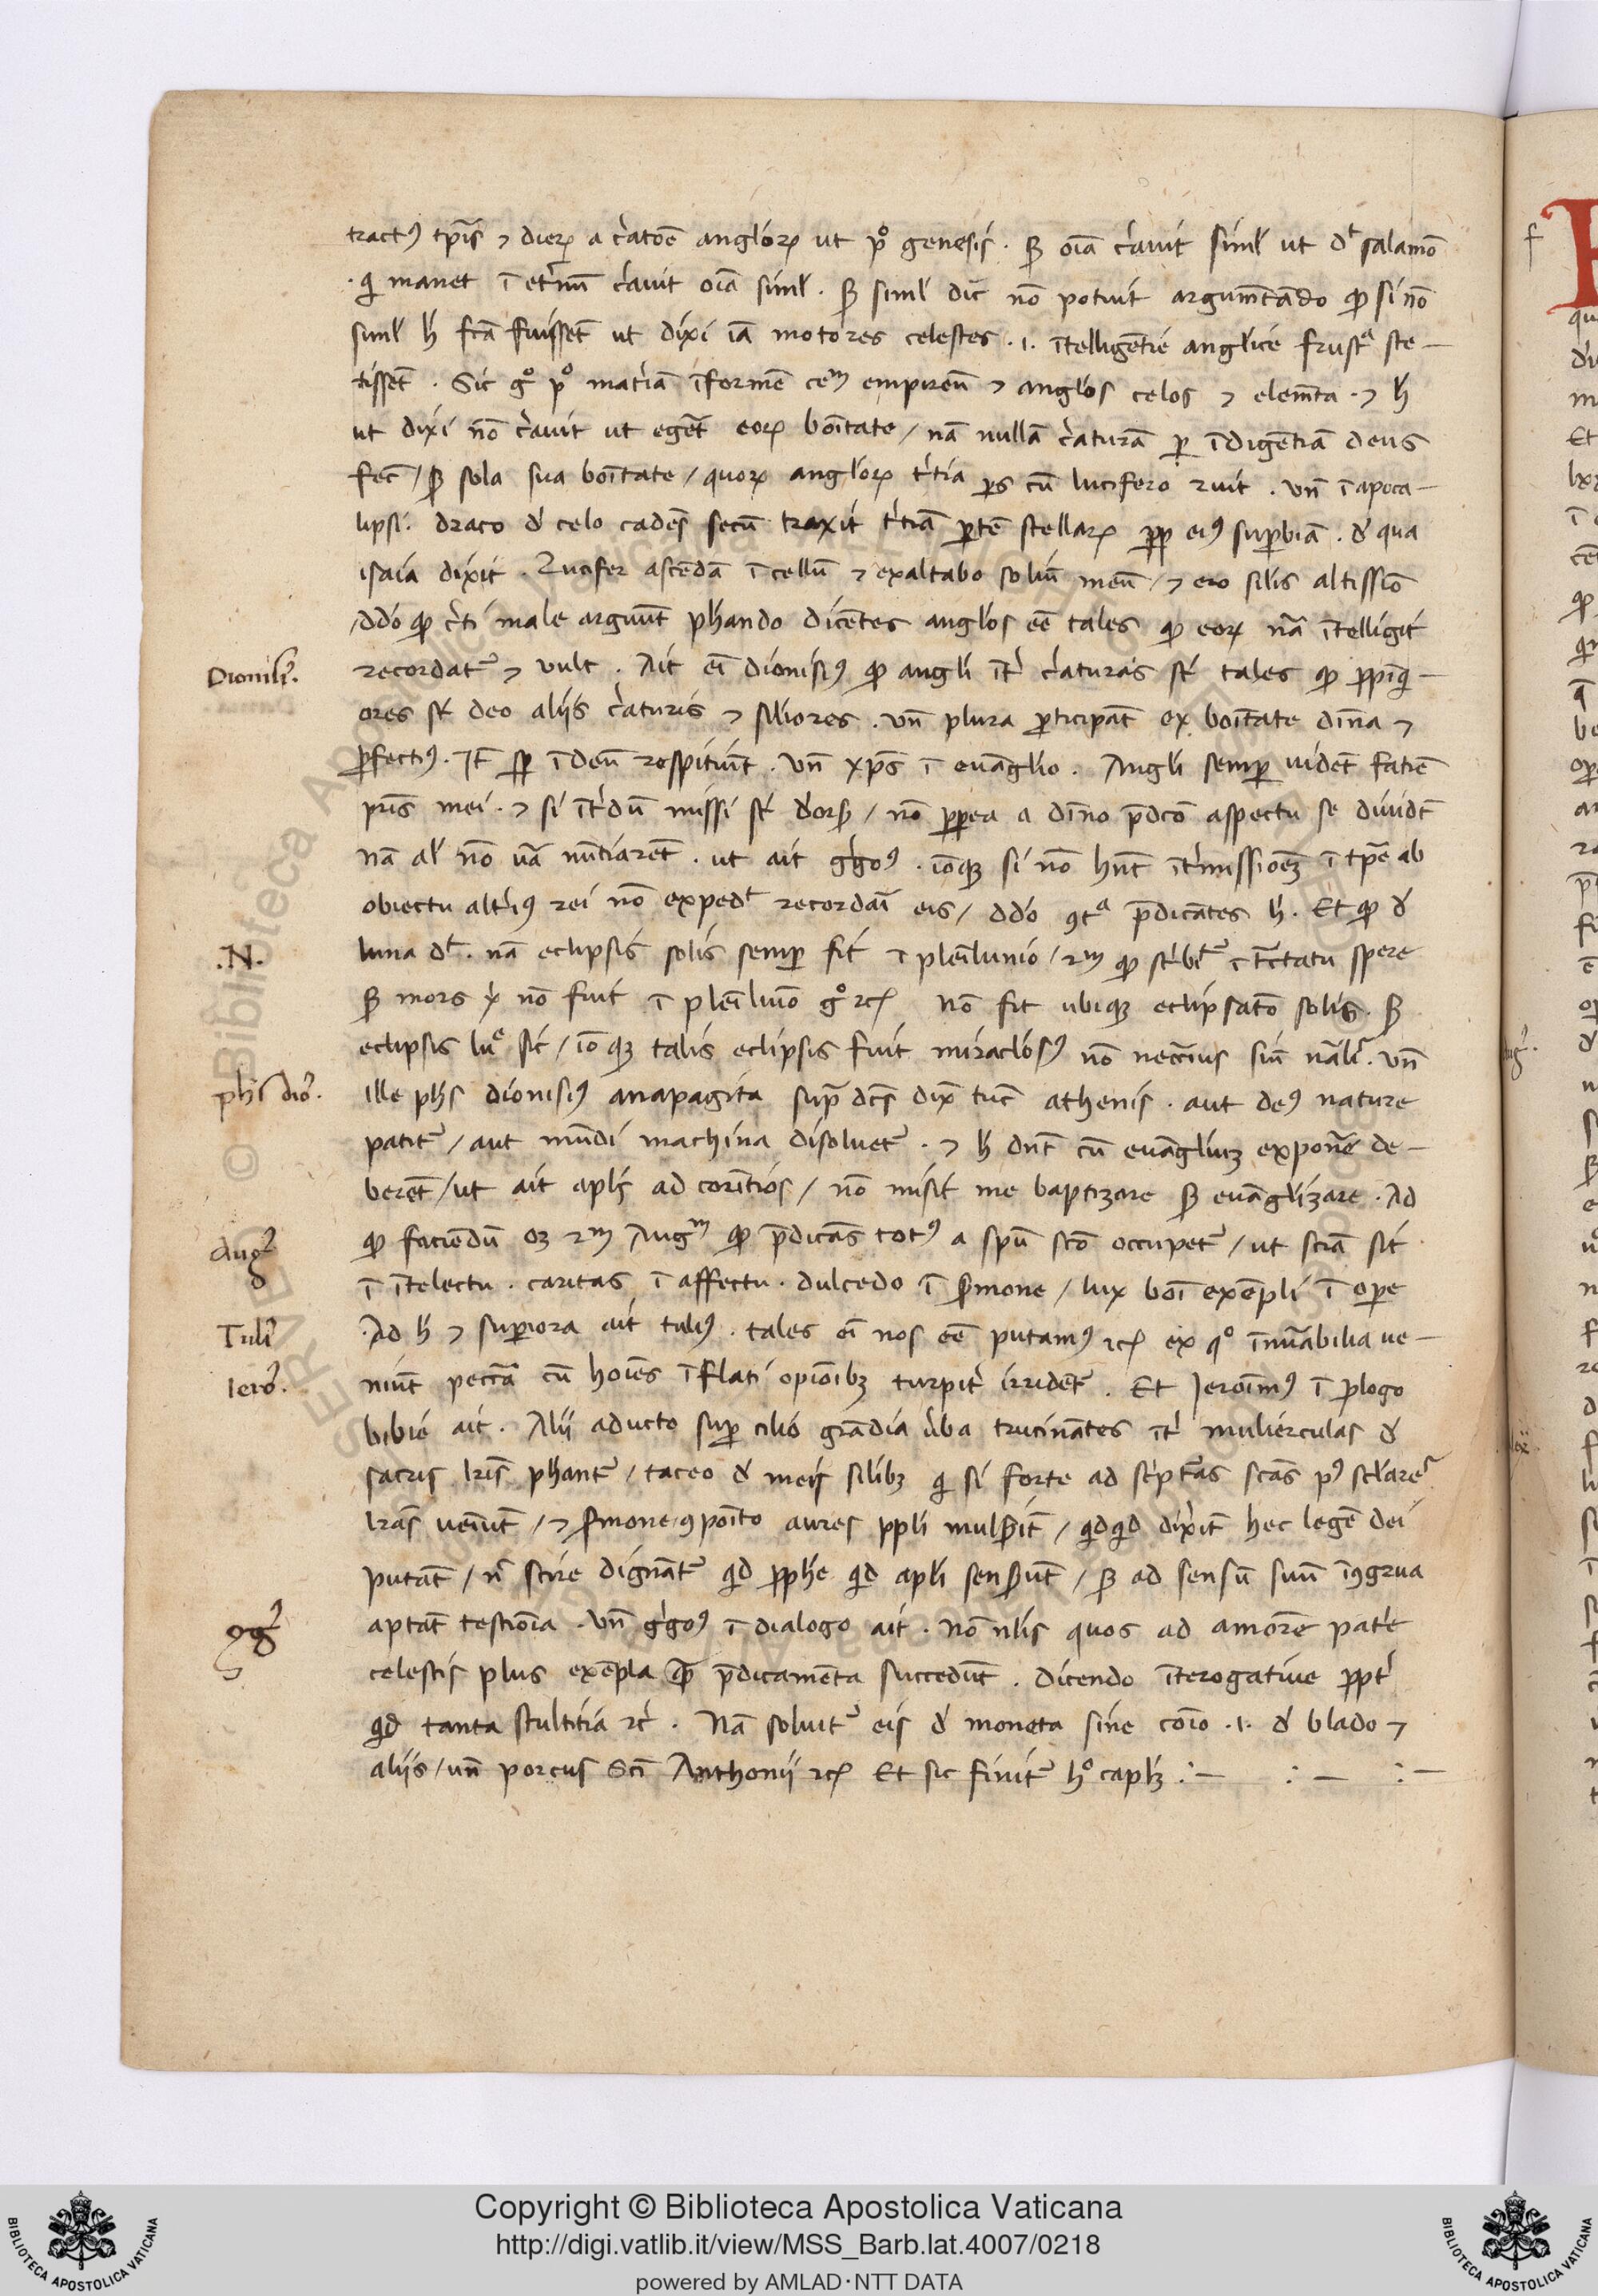 tract᷒ tp̄is ⁊ dieꝝ a c̓atōe angloꝝ ut pº genesis . sꝫ oīa c̓auit siml̓ ut dt̄ salamō
. qͥ manet ī et̓nū c̓auit oīa siml̓ . sꝫ siml̓ dic̄ nō potuit argum̄tādo ꝙ si nō
siml̓ h̓ fc̄a fuissēt ut dixi iā motores celestes . i . ītelligētie anglice frustª ste—
tissēt . Sic gº pº mat̓iā īformē ceᵐ empireū ⁊ anglos celos ⁊ elem̄ta . ⁊ h̓
ut dixi nō c̓auit ut egēt eoꝝ boītate / nā nullā c̓aturā ꝑ īdigētiā deus
fec̄ / sꝫ sola sua boītate / quoꝝ angloꝝ t̓tia ꝑs cū lucifero ruit . Vn̄ ī apoca—
lipsi . draco d̓ celo cadēs secū traxit t̓tiā ꝑtē stellaꝝ ꝓp ei᷒ suꝑbiā . d̓ qua
isaia dixit . Lucifer ascēdā ī cellū ⁊ exaltabo soliū meū / ⁊ ero sil̓is altissīo
/ ddō ꝙ c̓ti male arguūt ph̓ando dicētes anglos eē tales ꝙ eoꝝ nā̄ ītelligit
recordat᷑ ⁊ vult . Ait eī dionisi᷒ ꝙ angli īt̓ c̓aturas st̄ tales ꝙ ꝓpīqͥ—
ores st̄ deo aliis c̓aturis ⁊ sil̓iores . vn̄ plura ꝑticipāt ex boītate diīna ⁊
ꝑfecti᷒ . Jt̄ sꝑ ī deū respitiūt . Vn̄ xp̄s ī euāglio . Angli semꝑ uidēt fatiē
pr̄is mei . ⁊ si īt̓dū missi st̄ d̓orsꝫ / nō ꝓpea a diīno p̄dc̄o aspectu se diuidt̄
nā al̓ nō uā̄ nūtiarēt . ut ait g̓go᷒ . iōqꝫ si nō hn̄t īt̓missioēꝫ ī tp̄e ab
obiectu alt̓i᷒ rei nō expedt̄ recordaī̄ eis / ddō ꝯtª p̄dicātes h̓ . Et ꝙ d̓
luna dt̄ . nā eclipsis solis semꝑ fit ī pleīlunio / 2ᵐ ꝙ sc̓bit᷑ ī t̄ctatu spere
sꝫ mors x̓ nō fuit ī pleīluīo gº ⁊cꝫ Nō fit ubiqꝫ eclipsatō solis . sꝫ
eclipsis lūe sic / iō qꝫ talis eclipsis fuit miraclos᷒ nō necc̄ius siū nāl̓r . Vn̄
ille ph̓s dionisi᷒ anapagita sup̄ dc̄s dix̄ tūc athenis . aut de᷒ nature
patit᷑ / aut mūdi machina disoluet᷑ . ⁊ h̓ dn̄t cū euāgliuꝫ exponē de—
berēt / ut ait apl̓s ad corītios / nō misit me baptizare sꝫ euāglizare . Ad
ꝙ faciendū oꝫ 2ᵐ Augᵐ ꝙ p̄dicās tot᷒ a spū scō occupet᷑ / ut sciā sit
ī ītelectu . caritas ī affectu . dulcedo ī s̓mone / lux boī exēpli ī oꝑe
. Ad h̓ ⁊ suꝑiora ait tuli᷒ . tales eī nos eē putam᷒ ⁊cꝫ ex qº īnūabilia ue—
niūt peccā̄ cū hoīes īflati opiōibꝫ turpit̓ irridēt᷑ . Et Jeroīm᷒ ī ꝓlogo
bibie ait . Alii aducto suꝑ cilio grādia u̓ba trutinātes īt̓ mulierculas d̓
sacris lr̄is ph̓ant᷑ / taceo d̓ meis sil̓ibꝫ qͥ si forte ad sc̓pt̄as scās p᷒ scl̓are᷑
lr̄as ueīut / ⁊ s̓mone ꝯpoīto aures ppl̓i muls̓it̄ / qͥdqͥd dix̓it̄ hec legē dei
putāt / n̄ scire dignāt᷑ qͥd ꝓphe qͥd apl̓i sens̓ūt / sꝫ ad sensū suū īꝯgrua
aptāt testiōia . Vn̄ g̓go᷒ ī dialogo ait . Nō nl̓is quos ad amorē pat̓e
celestis plus exēpla qm̄ p̄dicamēta succedūt . dicendo īterogatiue ꝓpt̓
qͥd tanta stultitia ⁊c̓ . Nā soluit᷑ eis d̓ moneta sine coīo . i . d̓ blado ⁊
aliis / un̄ porcus Sc̄i Anthonii ⁊cꝫ Et sic finit᷑ hº capl̓ꝫ :— :— :—
Dionisi᷒ .
. N .
ph̓s dio᷒ .
Aug᷒
Tuli᷒
Iero᷒ .
gg᷒
Copyright © Biblioteca Apostolica Vaticana
http://digi.vatlib.it/view/MSS_Barb.lat.4007/0218
powered by AMLAD·NTT DATA
BIBLIOTECA APOSTOLICA VATICANA
BIBLIOTECA APOSTOLICA VATICANA